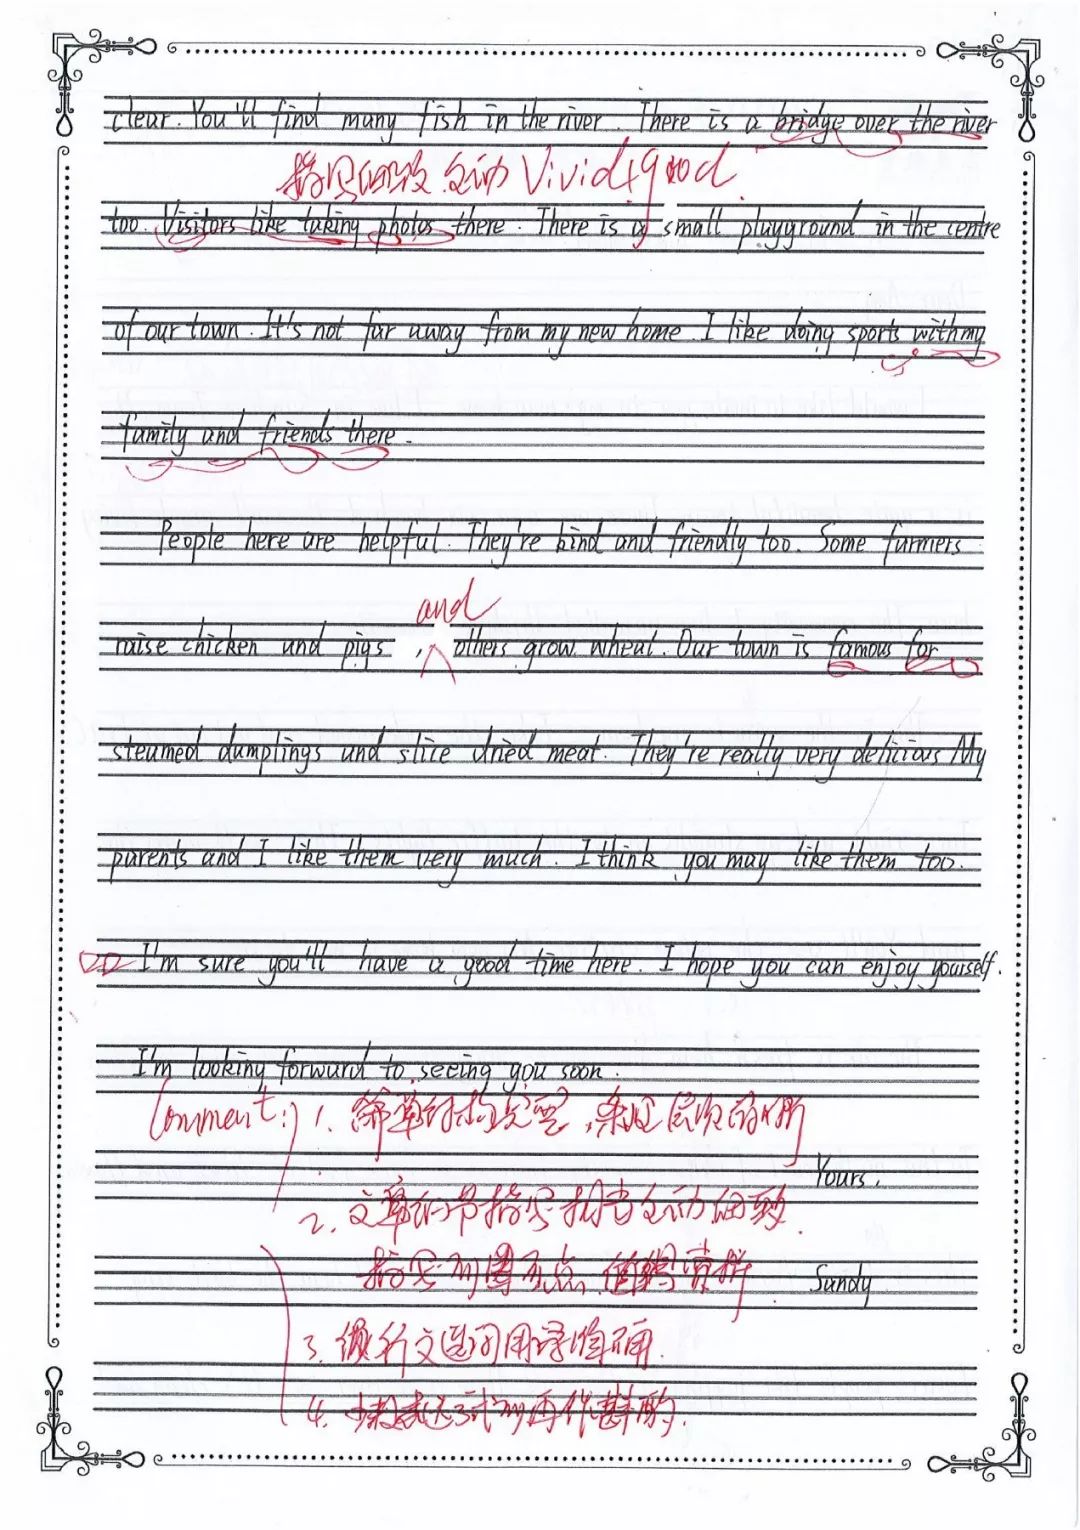 clear. You'll find many fish in the river. There is a bridge over the river
描写细致生动 Vivid+good
too. Visitors like taking photos there. There is a small playground in the centre
of our town. It's not far away from my new home. I like doing sports with my
family and friends there.
People here are helpful. They're kind and friendly too. Some farmers
and
raise chicken and pigs, others grow wheat. Our town is famous for
steamed dumplings and slice dried meat. They're really very delicious My
parents and I like them very much. I think you may like them too.
I'm sure you'll have a good time here. I hope you can enjoy yourself.
I'm looking forward to seeing you soon.
Comment: 1.
Yours,
2. 文章 描写 生动细致.
值得赏析
Sandy
3. 行文造词用 准确.
4. 再作斟酌.